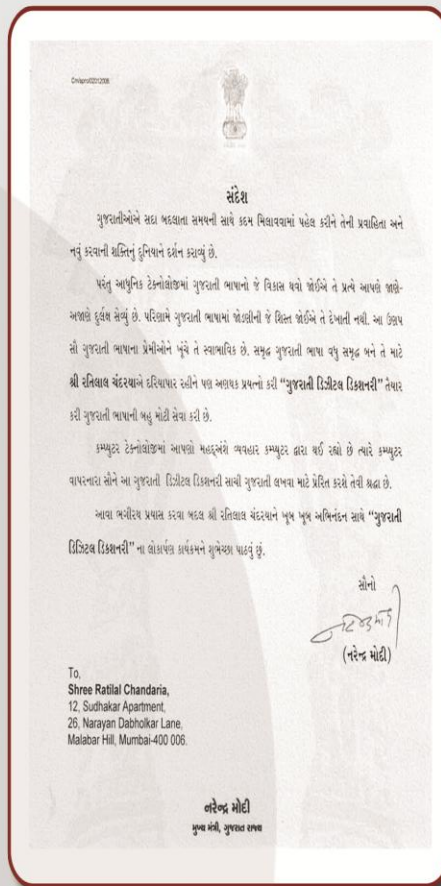 સંદેશ
ગુજરાતીઓએ સદા બદલાતા સમયની સાથે કદમ મિલાવવામાં પહેલ કરીને તેની પ્રવાહિતા અને
નવું કરવાની શક્તિનું દુનિયાને દર્શન કરાવ્યું છે.
પરંતુ આધુનિક ટેકનોલોજીમાં ગુજરાતી ભાષાનો જે વિકાસ થવો જોઈએ તે પ્રત્યે આપણે જાણે-
અજાણે દુર્લક્ષ સેવ્યું છે. પરિણામે ગુજરાતી ભાષામાં જોડણીની જે શિસ્ત જોઈએ તે દેખાતી નથી. આ ઉણપ
સૌ ગુજરાતી ભાષાના પ્રેમીઓને ખૂંચે તે સ્વાભાવિક છે. સમૃદ્ધ ગુજરાતી ભાષા વધુ સમૃદ્ધ બને તે માટે
શ્રી રતિલાલ ચંદરયાએ દરિયાપાર રહીને પણ અથાક પ્રયત્નો કરી “ગુજરાતી ડિઝીટલ ડિક્શનરી” તૈયાર
કરી ગુજરાતી ભાષાની બહુ મોટી સેવા કરી છે.
કમ્પ્યુટર ટેકનોલોજીમાં આપણો મહદ્અંશે વ્યવહાર કમ્પ્યુટર દ્વારા થઈ રહ્યો છે ત્યારે કમ્પ્યુટર
વાપરનારા સૌને આ ગુજરાતી ડિઝીટલ ડિક્શનરી સાચી ગુજરાતી લખવા માટે પ્રેરિત કરશે તેવી શ્રદ્ધા છે.
આવા ભગીરથ પ્રયાસ કરવા બદલ શ્રી રતિલાલ ચંદરયાને ખૂબ ખૂબ અભિનંદન સાથે “ગુજરાતી
ડિજિટલ ડિક્શનરી” ના લોકાર્પણ કાર્યક્રમને શુભેચ્છા પાઠવું છું.
સૌનો
(નરેન્દ્ર મોદી)
To,
Shree Ratilal Chandaria,
12, Sudhakar Apartment,
26, Narayan Dabholkar Lane,
Malabar Hill, Mumbai-400 006.
નરેન્દ્ર મોદી
મુખ્ય મંત્રી, ગુજરાત રાજ્ય